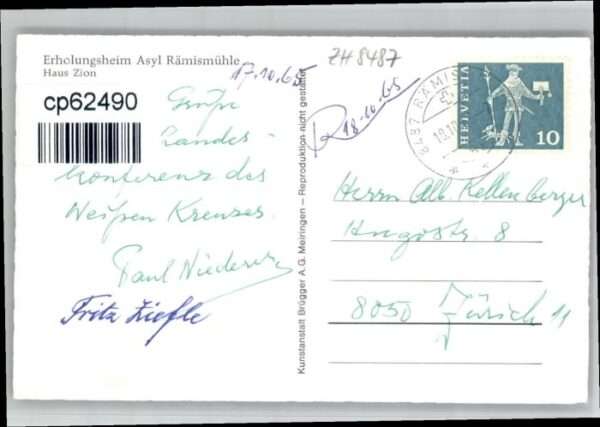 Erholungsheim Asyl Rämismühle
Haus Zion
17.10.65
ZH8487
cp62490
Große
Landes-
konferenz des
Weißen Kreuzes.
Paul Niederer
Fritz Ziefle
Kunstanstalt Brügger A.G. Meiringen – Reproduktion nicht gestattet
R 18.10.65
8487 RÄMIS
18.10
HELVETIA
10
Herrn Alb. Kellenberger
8
8050 Zürich 11